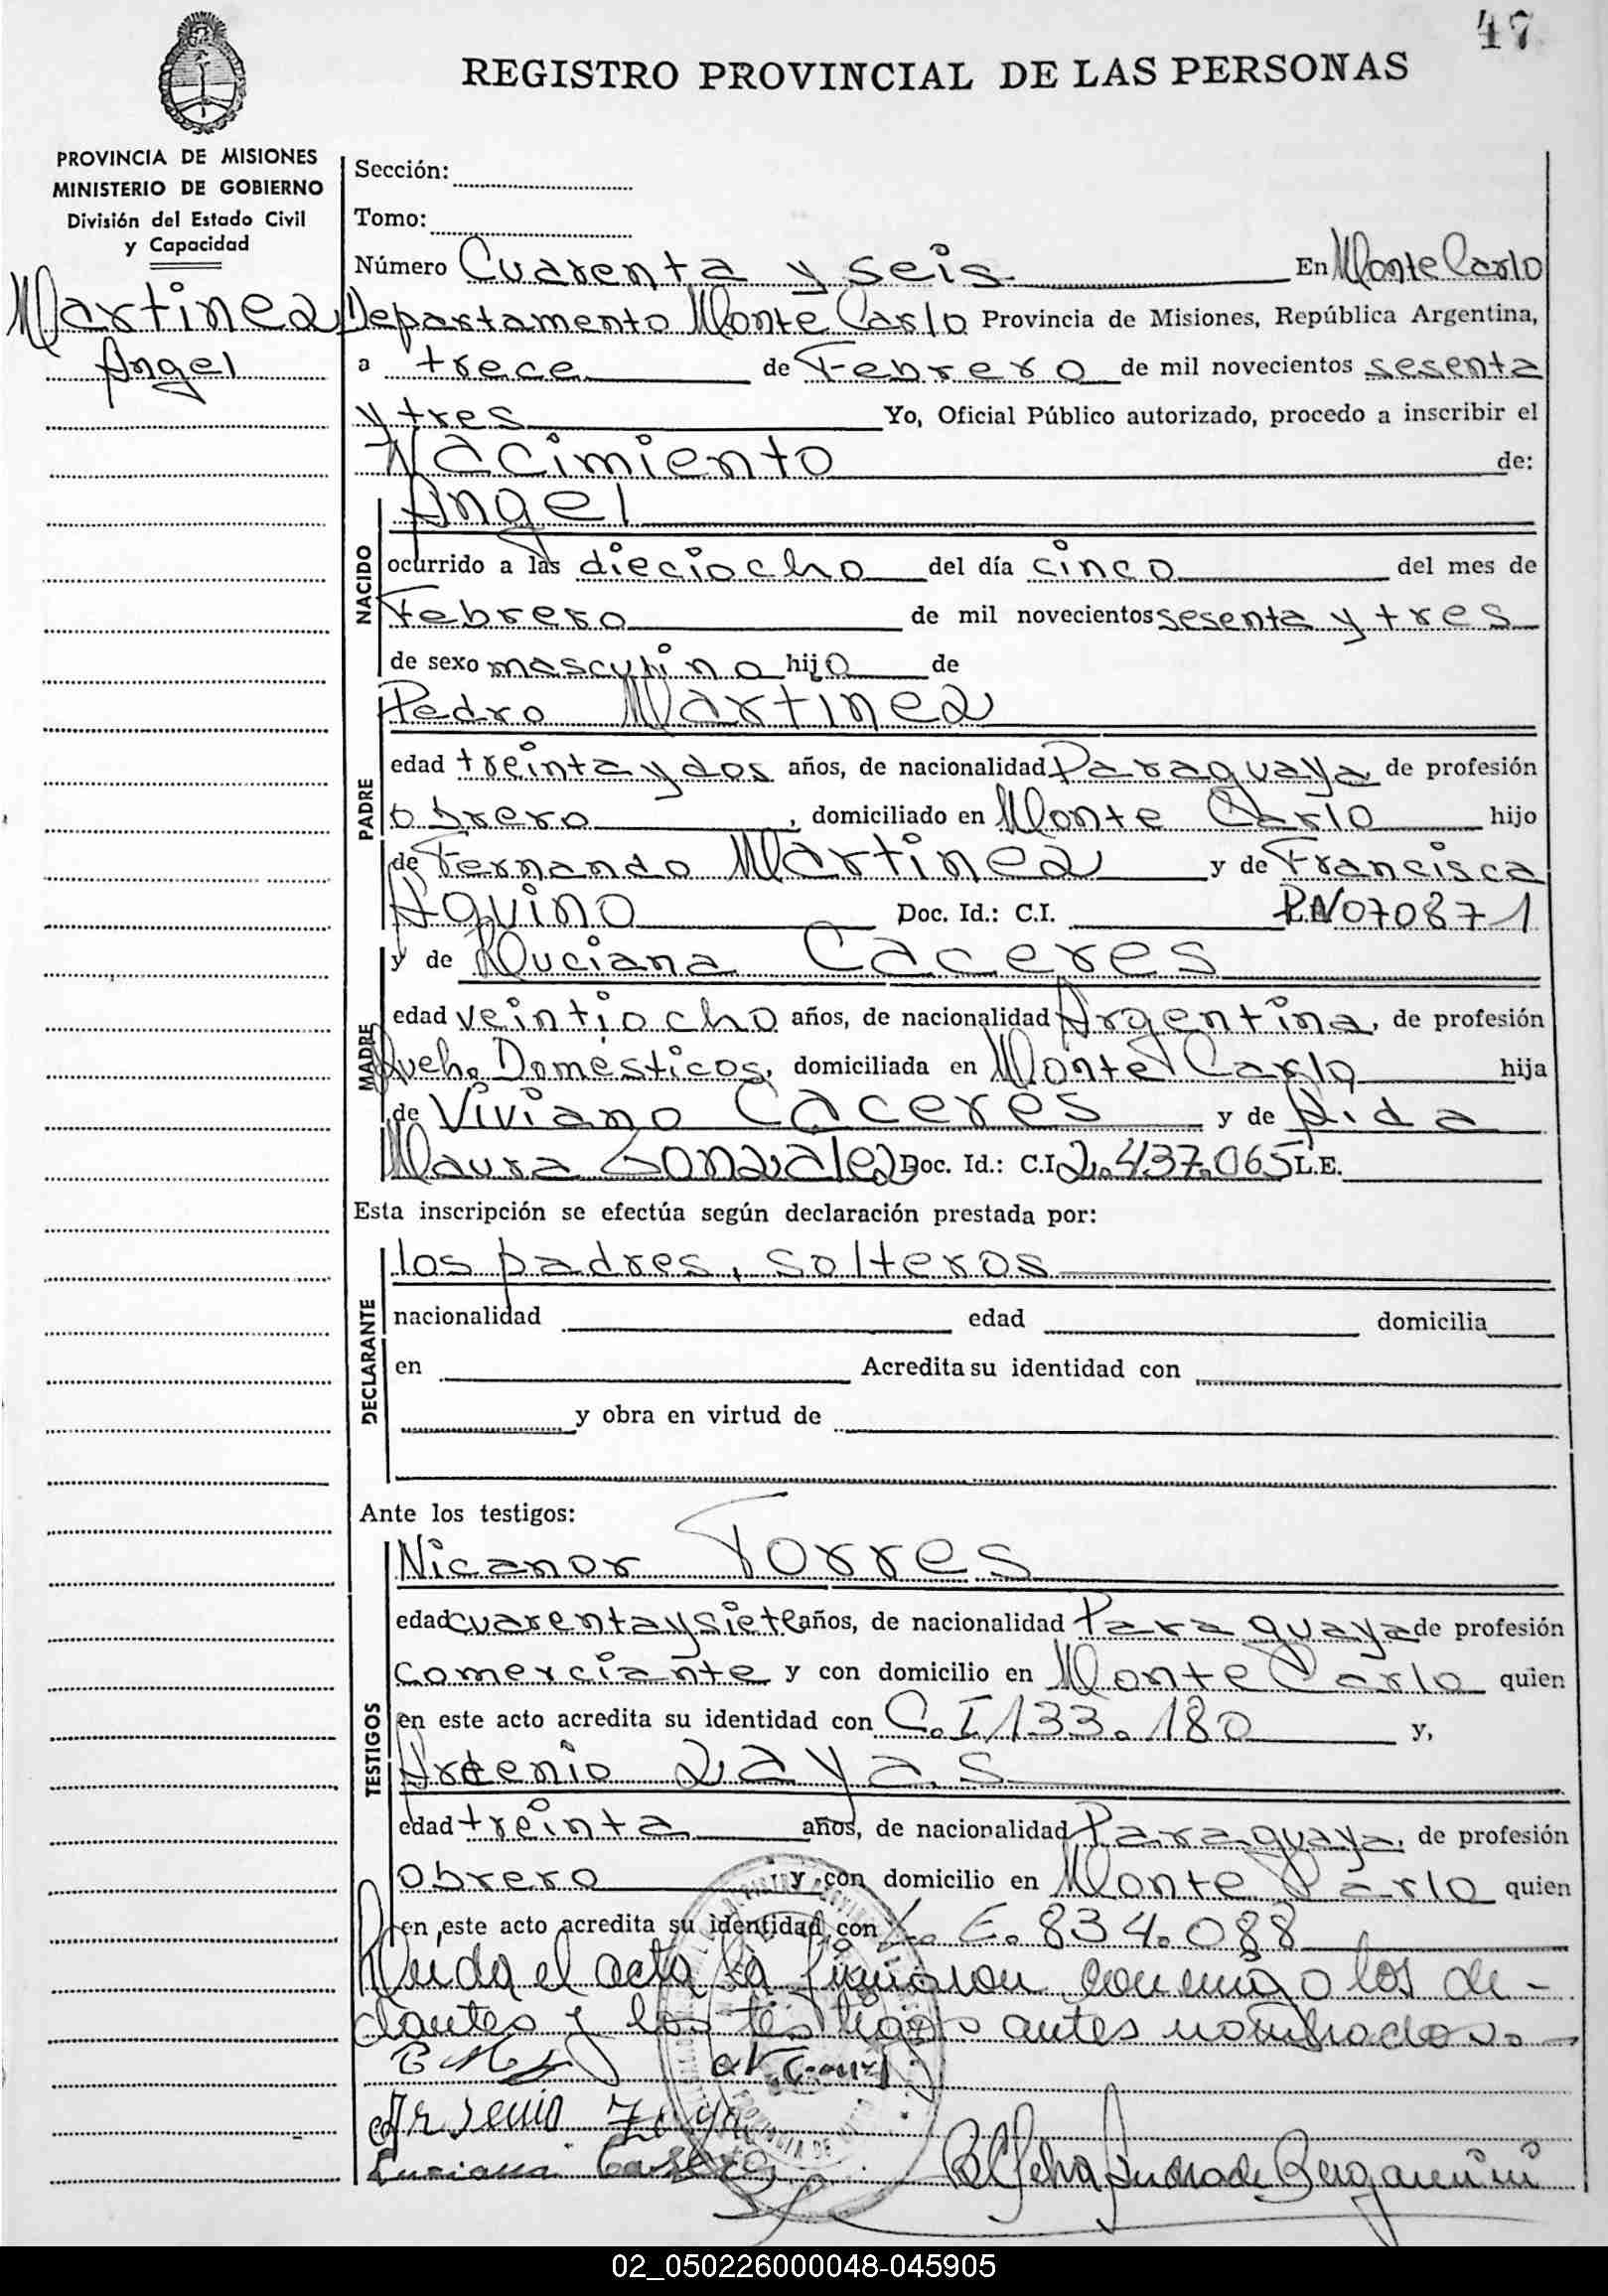 47
REGISTRO PROVINCIAL DE LAS PERSONAS
PROVINCIA DE MISIONES
MINISTERIO DE GOBIERNO
División del Estado Civil
y Capacidad
Martinez
Angel
Sección:
Tomo:
Número Cuarenta y seis En Monte Carlo
Departamento Monte Carlo Provincia de Misiones, República Argentina,
a trece de Febrero de mil novecientos sesenta
y tres Yo, Oficial Público autorizado, procedo a inscribir el
Nacimiento de:
NACIDO
Angel
ocurrido a las dieciocho del día cinco del mes de
Febrero de mil novecientos sesenta y tres
de sexo masculino hijo de
PADRE
Pedro Martinez
edad treinta y dos años, de nacionalidad Paraguaya, de profesión
obrero, domiciliado en Monte Carlo hijo
de Fernando Martinez y de Francisca
Aquino Doc. Id.: C.I. 070871
MADRE
y de Luciana Caceres
edad veintiocho años, de nacionalidad Argentina, de profesión
Queh. Domésticos, domiciliada en Monte Carlo hija
de Viviano Caceres y de Aida
Maura Gonzalez Doc. Id.: C.I. 2.437.065 L.E.
Esta inscripción se efectúa según declaración prestada por:
DECLARANTE
los padres, solteros
nacionalidad edad domicilia
en Acredita su identidad con
y obra en virtud de
Ante los testigos:
TESTIGOS
Nicanor Torres
edad cuarenta y siete años, de nacionalidad Paraguaya de profesión
comerciante y con domicilio en Monte Carlo quien
en este acto acredita su identidad con C.I 133.180 y,
Arsenio Zayas
edad treinta años, de nacionalidad Paraguaya, de profesión
obrero y con domicilio en Monte Carlo quien
en este acto acredita su identidad con L.E. 834.088
Leida el acta la firmaron conmigo los de-
clantes y los testigos antes nombrados.
Arsenio Zayas
Luciana
de Bergamini
02_050226000048-045905